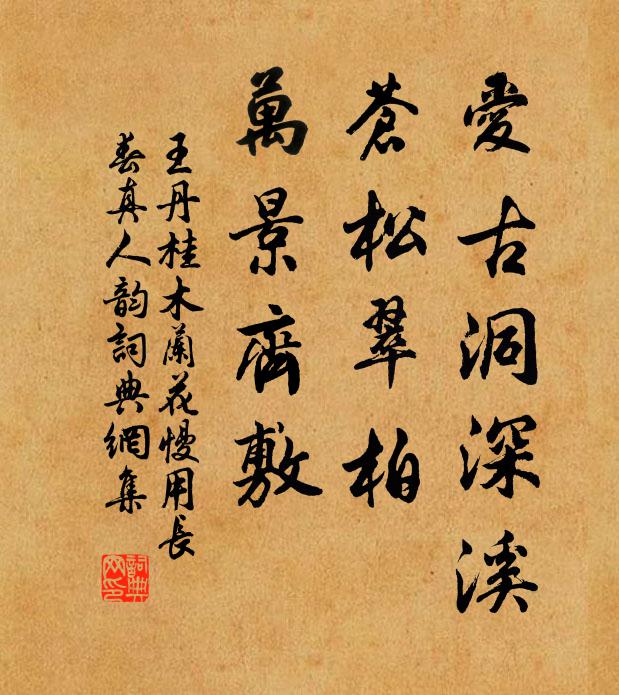 愛古洞深溪
蒼松翠柏
萬景齊敷
王丹桂木蘭花慢用長
春真人韵詞典網集
詞典
网印